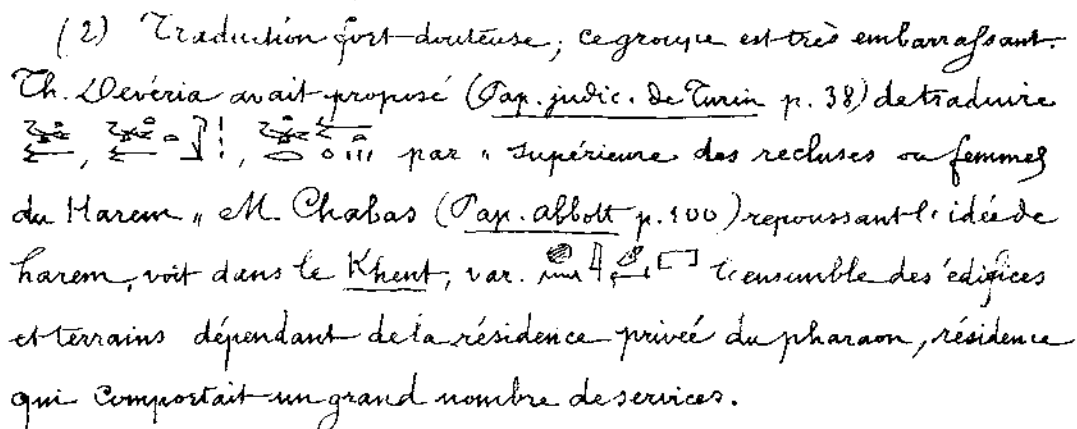 (2) Traduction fort douteuse; ce groupe est très embarrassant.
Th. Devéria avait proposé (Pap. judic. de Turin p. 38) de traduire
, , par "supérieure des recluses ou femmes
du Harem" M. Chabas (Pap. abbott p. 100) repoussant l'idée de
harem, voit dans le Khent, var. l'ensemble des édifices
et terrains dépendant de la résidence privée du pharaon, résidence
qui comportait un grand nombre de services.